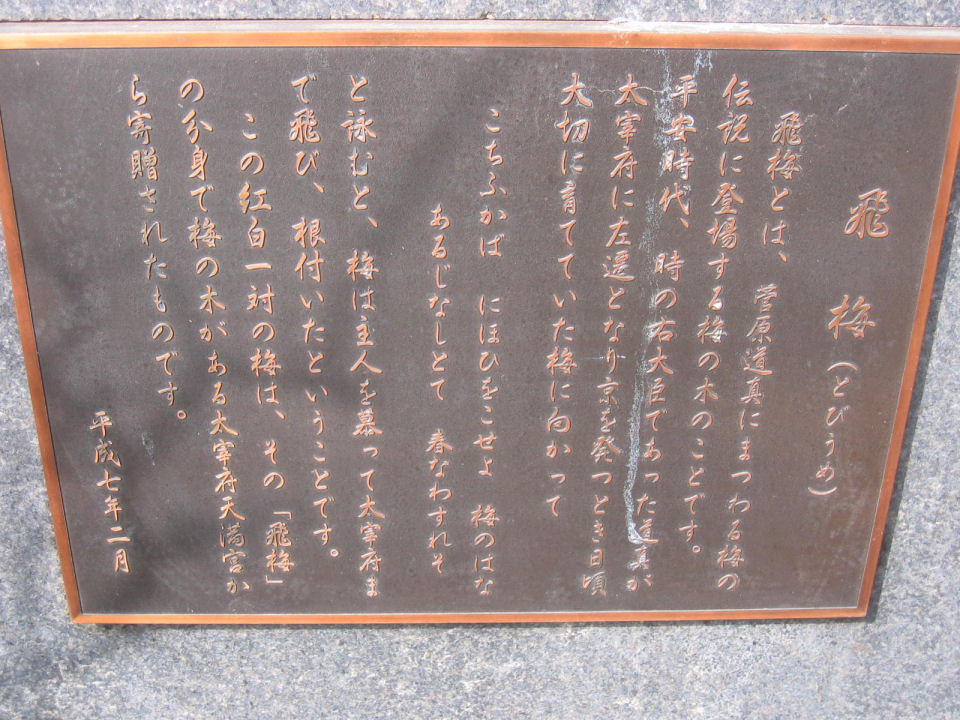 飛梅（とびうめ）
飛梅とは、菅原道真にまつわる梅の
伝説に登場する梅の木のことです。
平安時代、時の右大臣であった道真が
太宰府に左遷となり京を発つとき日頃
大切に育てていた梅に向かって
こちふかば にほひをこせよ 梅のはな
あるじなしとて 春なわすれそ
と詠むと、梅は主人を慕って太宰府ま
で飛び、根付いたということです。
この紅白一対の梅は、その「飛梅」
の分身で梅の木がある太宰府天満宮か
ら寄贈されたものです。
平成七年二月